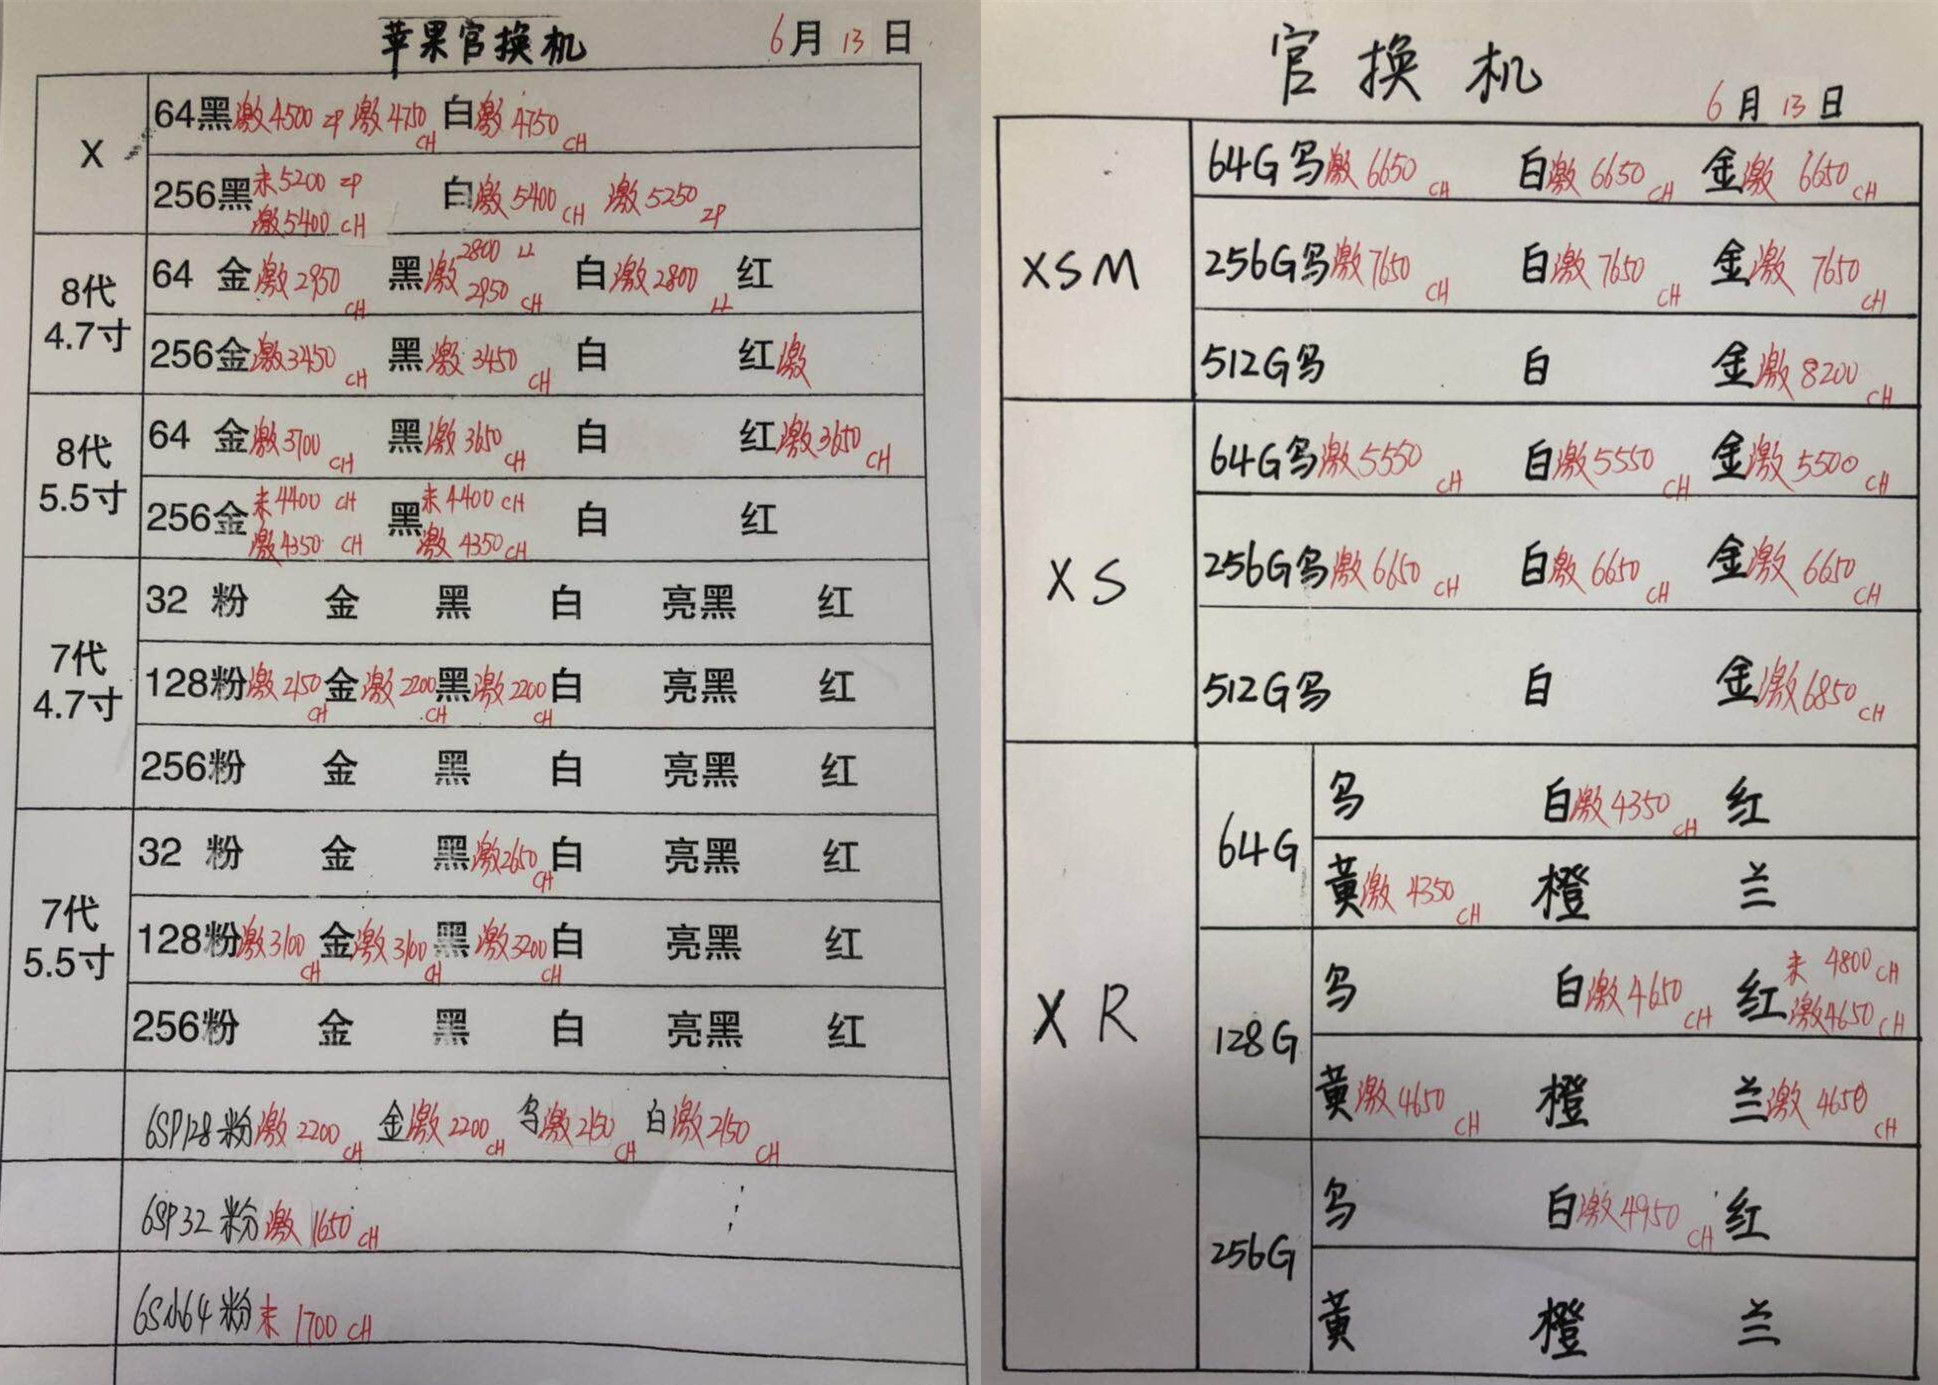 苹果官换机 6月13日
X
64黑激4500 ZP 激4750 CH 白激4750 CH
256黑未5200 ZP 激5400 CH 白激5400 CH 激5250 ZP
8代 4.7寸
64 金激2950 CH 黑激2800 LL 2950 CH 白激2800 LL 红
256金激3450 CH 黑激3450 CH 白 红激
8代 5.5寸
64 金激3700 CH 黑激3650 CH 白 红激3650 CH
256金未4400 CH 激4350 CH 黑未4400 CH 激4350 CH 白 红
7代 4.7寸
32 粉 金 黑 白 亮黑 红
128粉激2150 CH 金激2200 CH 黑激2200 CH 白 亮黑 红
256粉 金 黑 白 亮黑 红
7代 5.5寸
32 粉 金 黑激2650 CH 白 亮黑 红
128粉激3100 CH 金激3100 CH 黑激3200 CH 白 亮黑 红
256粉 金 黑 白 亮黑 红
6SP128粉激2200 CH 金激2200 CH 乌激2150 CH 白激2150 CH
6SP32粉激1650 CH
6S小64粉未1700 CH
官换机
6月13日
XSM
64G乌激6650 CH 白激6650 CH 金激6650 CH
256G乌激7650 CH 白激7650 CH 金激7650 CH
512G乌 白 金激8200 CH
XS
64G乌激5550 CH 白激5550 CH 金激5500 CH
256G乌激6650 CH 白激6650 CH 金激6650 CH
512G乌 白 金激6850 CH
XR
64G
乌 白激4350 CH 红
黄激4350 CH 橙 兰
128G
乌 白激4650 CH 红未4800 CH 激4650 CH
黄激4650 CH 橙 兰激4650 CH
256G
乌 白激4950 CH 红
黄 橙 兰